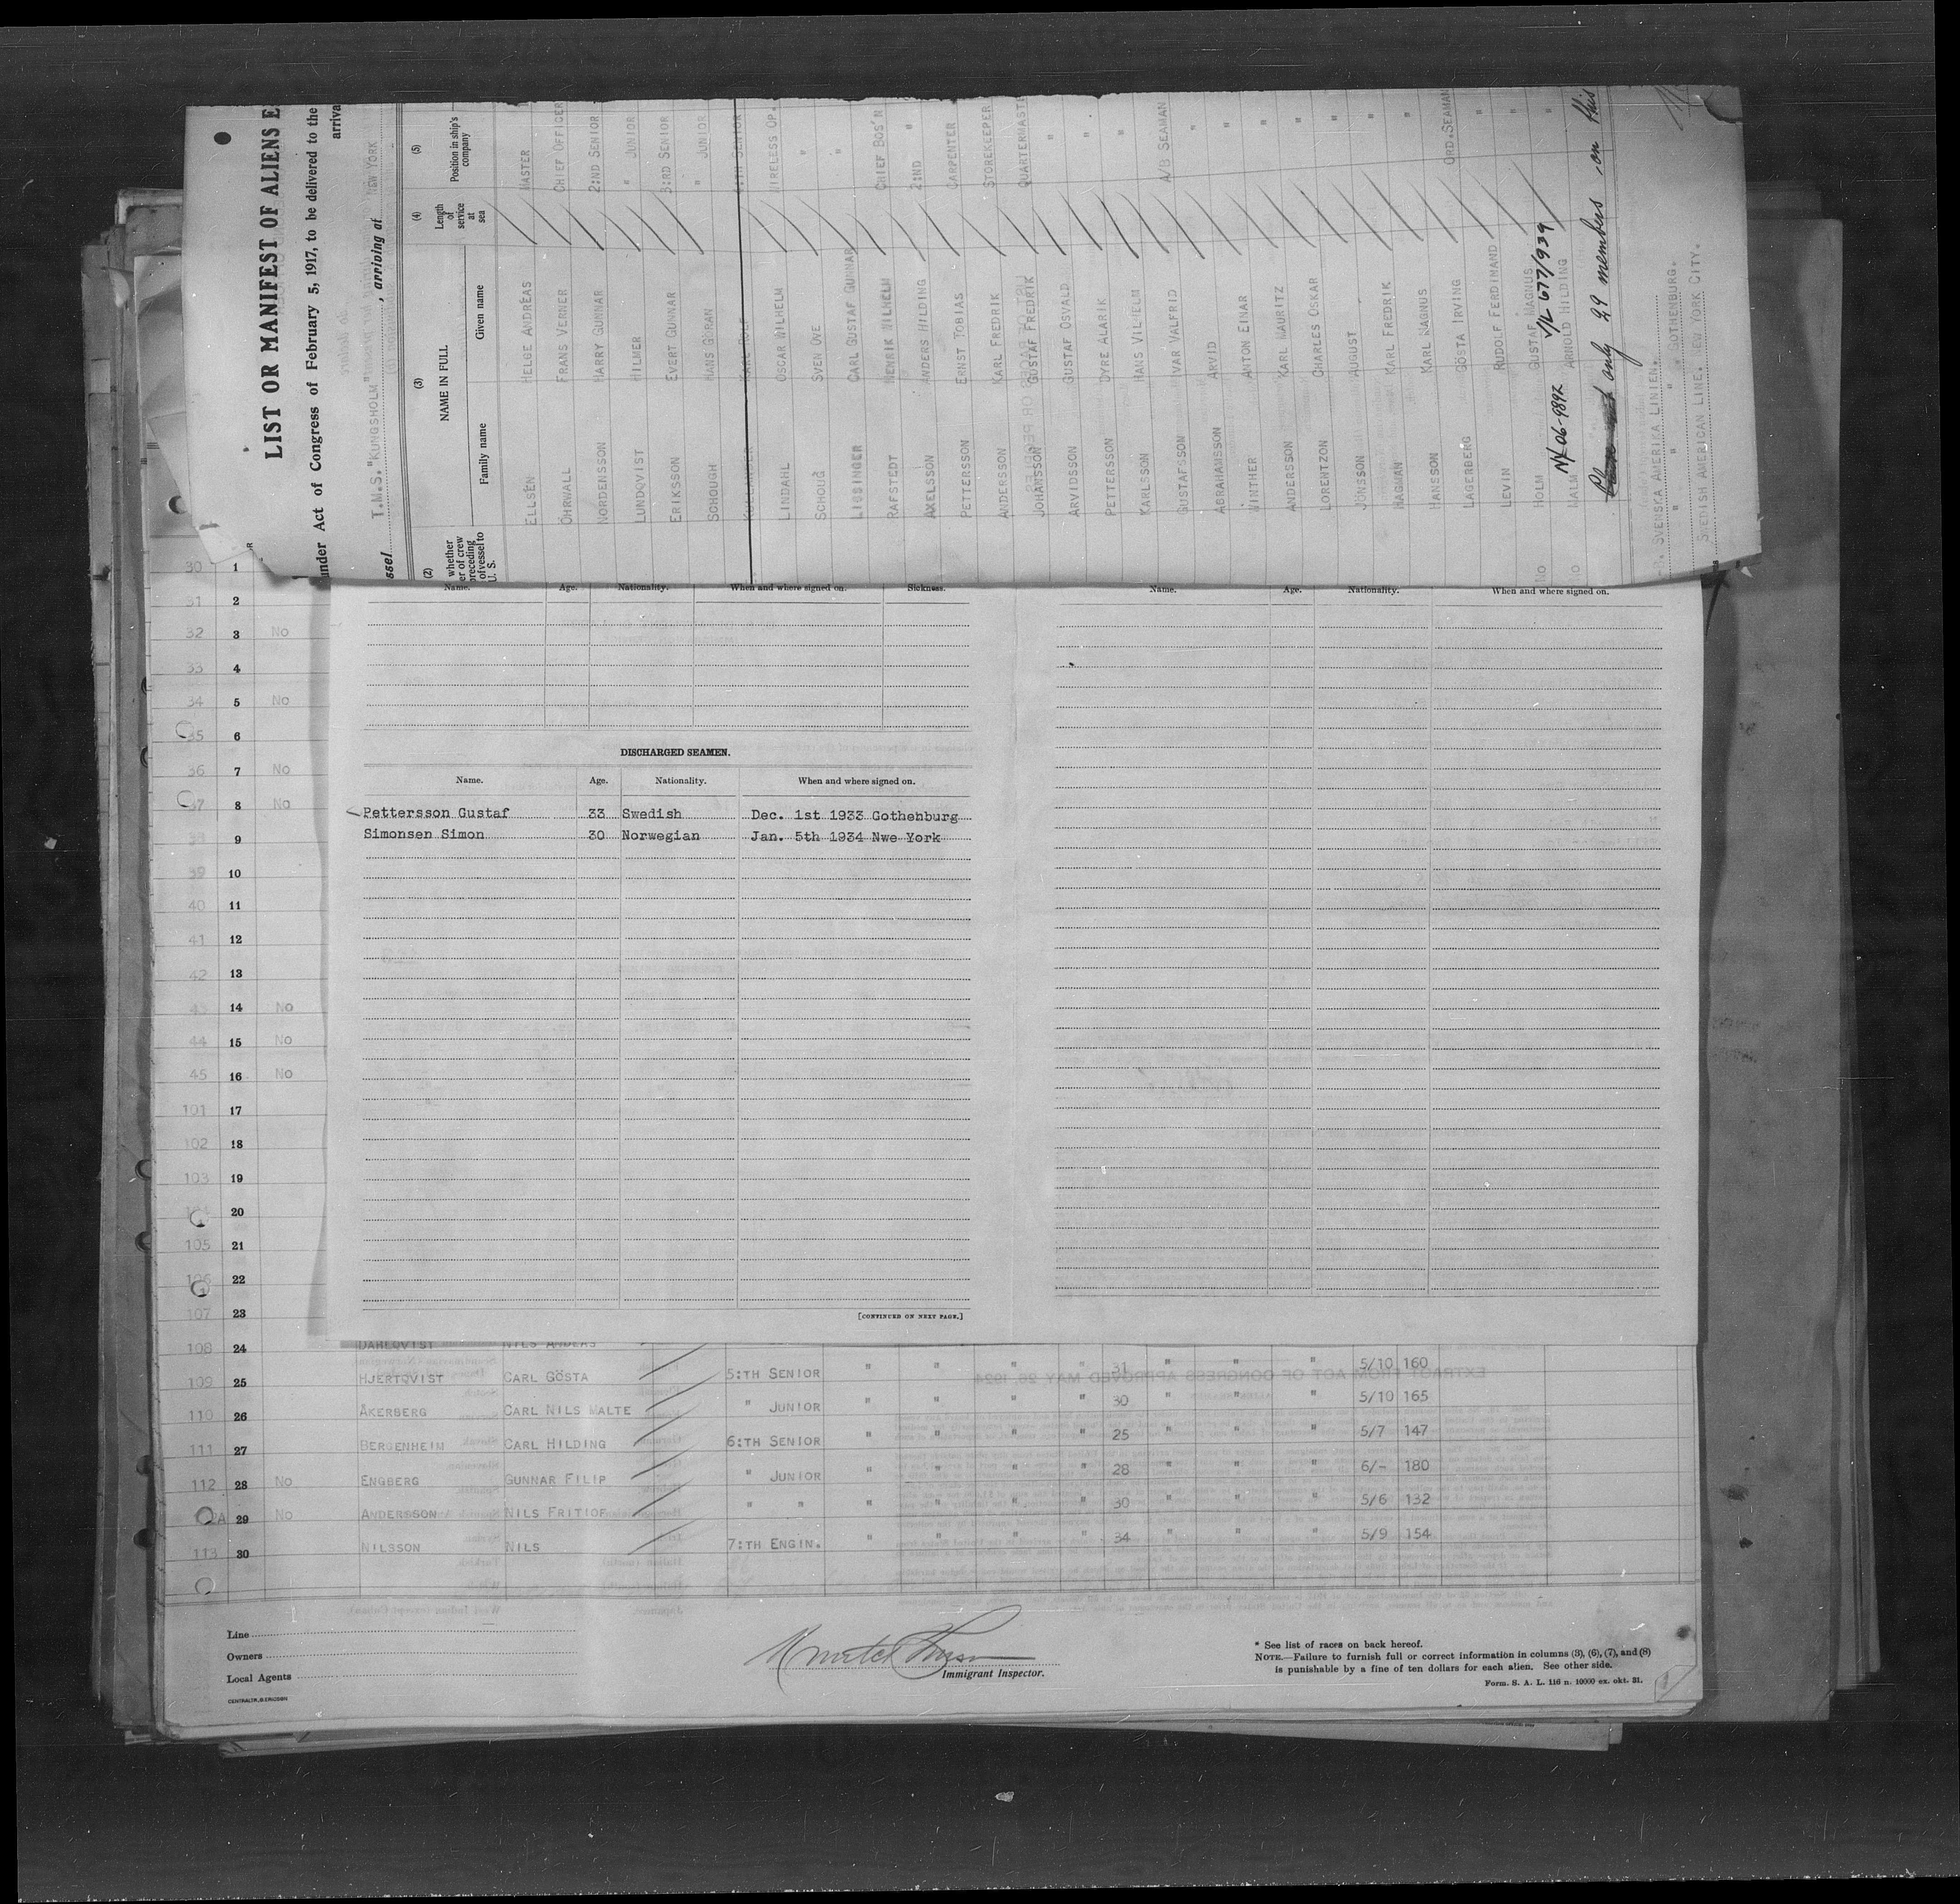 LIST OR MANIFEST OF ALIENS E
under Act of Congress of February 5, 1917, to be delivered to the
arriva
ssel T.M.S. "KUNGSHOLM" , arriving at NEW YORK
(2) (3) (4) (5)
whether
er of crew
preceding
of vessel to
U. S.
NAME IN FULL
Family name Given name
Length
of
service
at
sea
Position in ship's
company
ELLSÉN HELGE ANDRÉAS MASTER
ÖHRWALL FRANS VERNER CHIEF OFFICER
NORDENSSON HARRY GUNNAR 2:ND SENIOR
LUNDQVIST HILMER " JUNIOR
ERIKSSON EVERT GUNNAR 3:RD SENIOR
SCHOUGH HANS GÖRAN " JUNIOR
LINDAHL OSCAR WILHELM WIRELESS OP.
SCHOUG SVEN OVE "
LISSINGER CARL GUSTAF GUNNAR "
RAFSTEDT HENRIK WILHELM CHIEF BOS'N
AXELSSON ANDERS HILDING 2:ND "
PETTERSSON ERNST TOBIAS CARPENTER
ANDERSSON KARL FREDRIK STOREKEEPER
JOHANSSON GUSTAF FREDRIK QUARTERMAST
ARVIDSSON GUSTAF OSVALD "
PETTERSSON DYRE ALARIK "
KARLSSON HANS VILHELM "
GUSTAFSSON IVAR VALFRID A/B SEAMAN
ABRAHAMSSON ARVID "
WINTHER ANTON EINAR "
ANDERSSON KARL MAURITZ "
LORENTZON CHARLES OSKAR "
JÖNSSON AUGUST "
HAGMAN KARL FREDRIK "
HANSSON KARL MAGNUS "
LAGERBERG GÖSTA IRVING ORD.SEAMAN
LEVIN RUDOLF FERDINAND "
No HOLM GUSTAF MAGNUS "
No MALM ARNOLD HILDING "
V/L 677/939
NY 06-9892
only 29 members on this
SVENSKA AMERIKA LINIEN.
" " " GOTHENBURG.
SWEDISH AMERICAN LINE. NEW YORK CITY.
Name. Age. Nationality. When and where signed on. Sickness.
Name. Age. Nationality. When and where signed on.
DISCHARGED SEAMEN.
Name. Age. Nationality. When and where signed on.
Pettersson Gustaf 33 Swedish Dec. 1st 1933 Gothenburg
Simonsen Simon 30 Norwegian Jan. 5th 1934 Nwe York
[CONTINUED ON NEXT PAGE.]
30 1
31 2
32 3 No
33 4
34 5 No
35 6
36 7 No
37 8 No
38 9
39 10
40 11
41 12
42 13
43 14 No
44 15 No
45 16 No
101 17
102 18
103 19
20
105 21
106 22
107 23
108 24 DAHLQVIST NILS ANDERS
109 25 HJERTQVIST CARL GÖSTA 5:TH SENIOR " " " " 31 " " " 5/10 160
110 26 ÅKERBERG CARL NILS MALTE " JUNIOR " " " " 30 " " " 5/10 165
111 27 BERGENHEIM CARL HILDING 6:TH SENIOR " " " " 25 " " " 5/7 147
112 28 No ENGBERG GUNNAR FILIP " JUNIOR " " " " 28 " " " 6/- 180
29 No ANDERSSON NILS FRITIOF " " " " " " 30 " " " 5/6 132
113 30 NILSSON NILS 7:TH ENGIN. " " " " 34 " " " 5/9 154
EXTRACT FROM ACT OF CONGRESS APPROVED MAY 26, 1924
Line
Owners
Local Agents
CENTRALTR., G. ERICSON
Immigrant Inspector.
* See list of races on back hereof.
NOTE.—Failure to furnish full or correct information in columns (3), (6), (7), and (8)
is punishable by a fine of ten dollars for each alien. See other side.
Form. S. A. L. 116 n. 10000 ex. okt. 31.